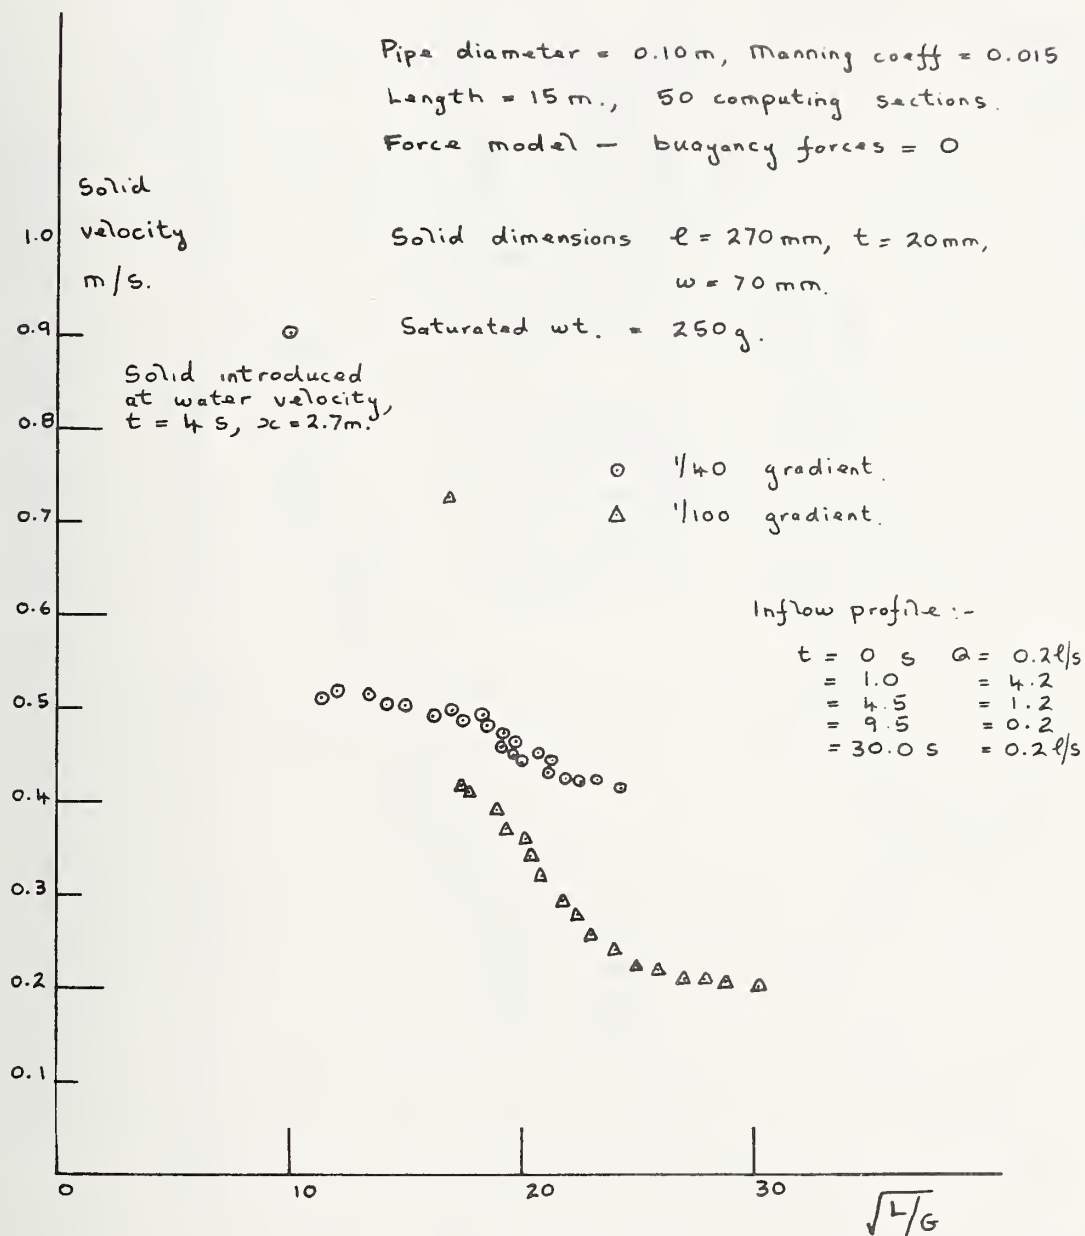 Pipe diameter = 0.10 m, Manning coeff = 0.015
Length = 15 m., 50 computing sections.
Force model - buoyancy forces = 0
Solid
velocity
m/s.
Solid dimensions ℓ = 270 mm, t = 20 mm,
w = 70 mm.
Saturated wt. = 250 g.
Solid introduced
at water velocity,
t = 4 s, x = 2.7m.
⊙ 1/40 gradient.
△ 1/100 gradient.
Inflow profile :-
t = 0 s Q = 0.2 ℓ/s
= 1.0 = 4.2
= 4.5 = 1.2
= 9.5 = 0.2
= 30.0 s = 0.2 ℓ/s
1.0
0.9
0.8
0.7
0.6
0.5
0.4
0.3
0.2
0.1
0 10 20 30
√L/G